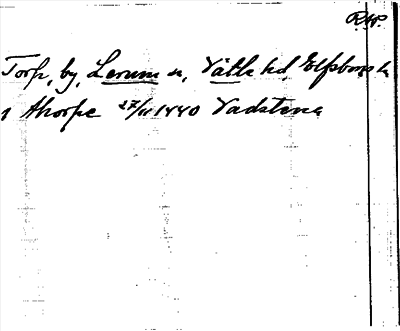 RAP.
Torp, by, Lerums sn, Vätle hd, Elfsborgs län
i Thorpe 27/11 1440 Vadstena